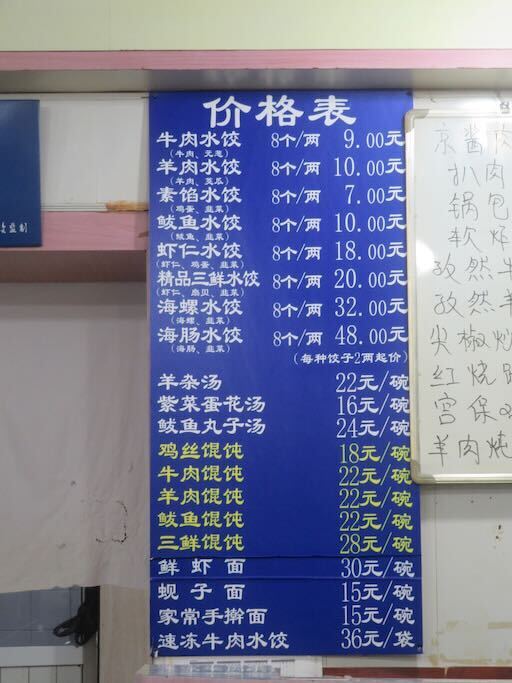 价格表
牛肉水饺 8个/两 9.00元
(牛肉、元葱)
羊肉水饺 8个/两 10.00元
(羊肉、茭瓜)
素馅水饺 8个/两 7.00元
(鸡蛋、韭菜)
鲅鱼水饺 8个/两 10.00元
(鲅鱼、韭菜)
虾仁水饺 8个/两 18.00元
(虾仁、鸡蛋、韭菜)
精品三鲜水饺 8个/两 20.00元
(虾仁、扇贝、韭菜)
海螺水饺 8个/两 32.00元
(海螺、韭菜)
海肠水饺 8个/两 48.00元
(海肠、韭菜)
(每种饺子2两起价)
羊杂汤 22元/碗
紫菜蛋花汤 16元/碗
鲅鱼丸子汤 24元/碗
鸡丝馄饨 18元/碗
牛肉馄饨 22元/碗
羊肉馄饨 22元/碗
鲅鱼馄饨 22元/碗
三鲜馄饨 28元/碗
鲜虾面 30元/碗
蚬子面 15元/碗
家常手擀面 15元/碗
速冻牛肉水饺 36元/袋
京酱肉
扒肉
锅包
软炸
孜然牛
孜然羊
尖椒炒
红烧
宫保
羊肉炖
监制